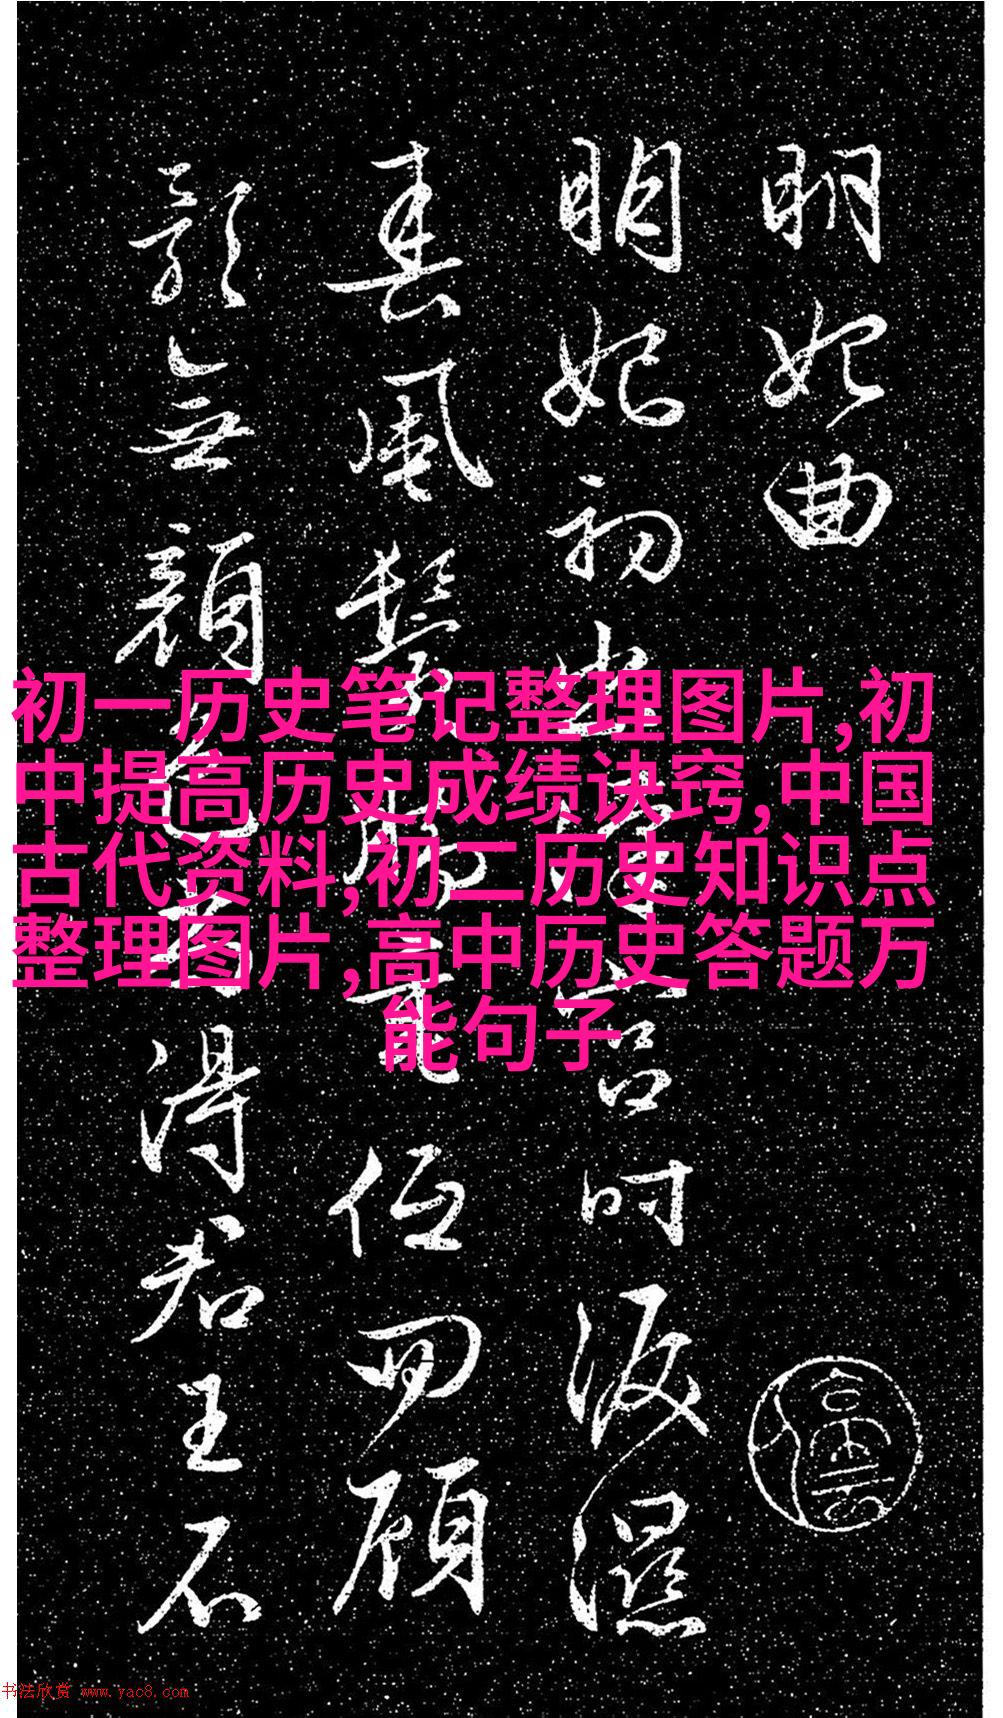 明妃曲
明妃初出漢宮時淚濕
春風鬢腳垂低回顧
影無顏色尚得君王不
初一历史笔记整理图片,初
中提高历史成绩诀窍,中国
古代资料,初二历史知识点
整理图片,高中历史答题万
能句子
书法欣赏 www.yac8.com